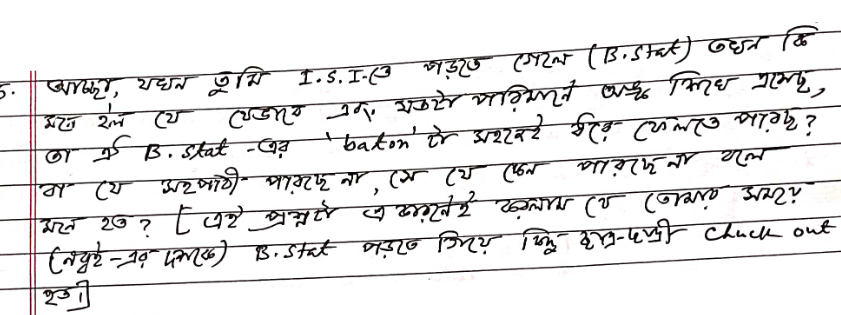 5. আচ্ছা, যখন তুমি I.S.I-তে পড়তে গেলে (B.Stat) তখন কি
মনে হল যে যেভাবে এবং যতটা পরিমানে অঙ্ক শিখে এসেছ,
তা ঐ B.Stat-এর 'baton' টা সহজেই ধরে ফেলতে পারছ?
বা যে সহপাঠী পারছে না, সে যে কেন পারছে না বলে
মনে হত? [এই প্রশ্নটা এ কারণেই করলাম যে তোমার সময়ে
(নব্বই-এর দশকে) B.Stat পড়তে গিয়ে কিছু ছাত্র-ছাত্রী chuck out
হত।]